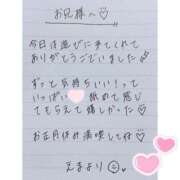 お兄様へ♡
今日は遊びに来てくれて
ありがとうございました
ずっと気持ちいい！って
いっぱい 舐めて感じ
てもらえて嬉しかった♡
お正月休み満喫してね♡
えまより